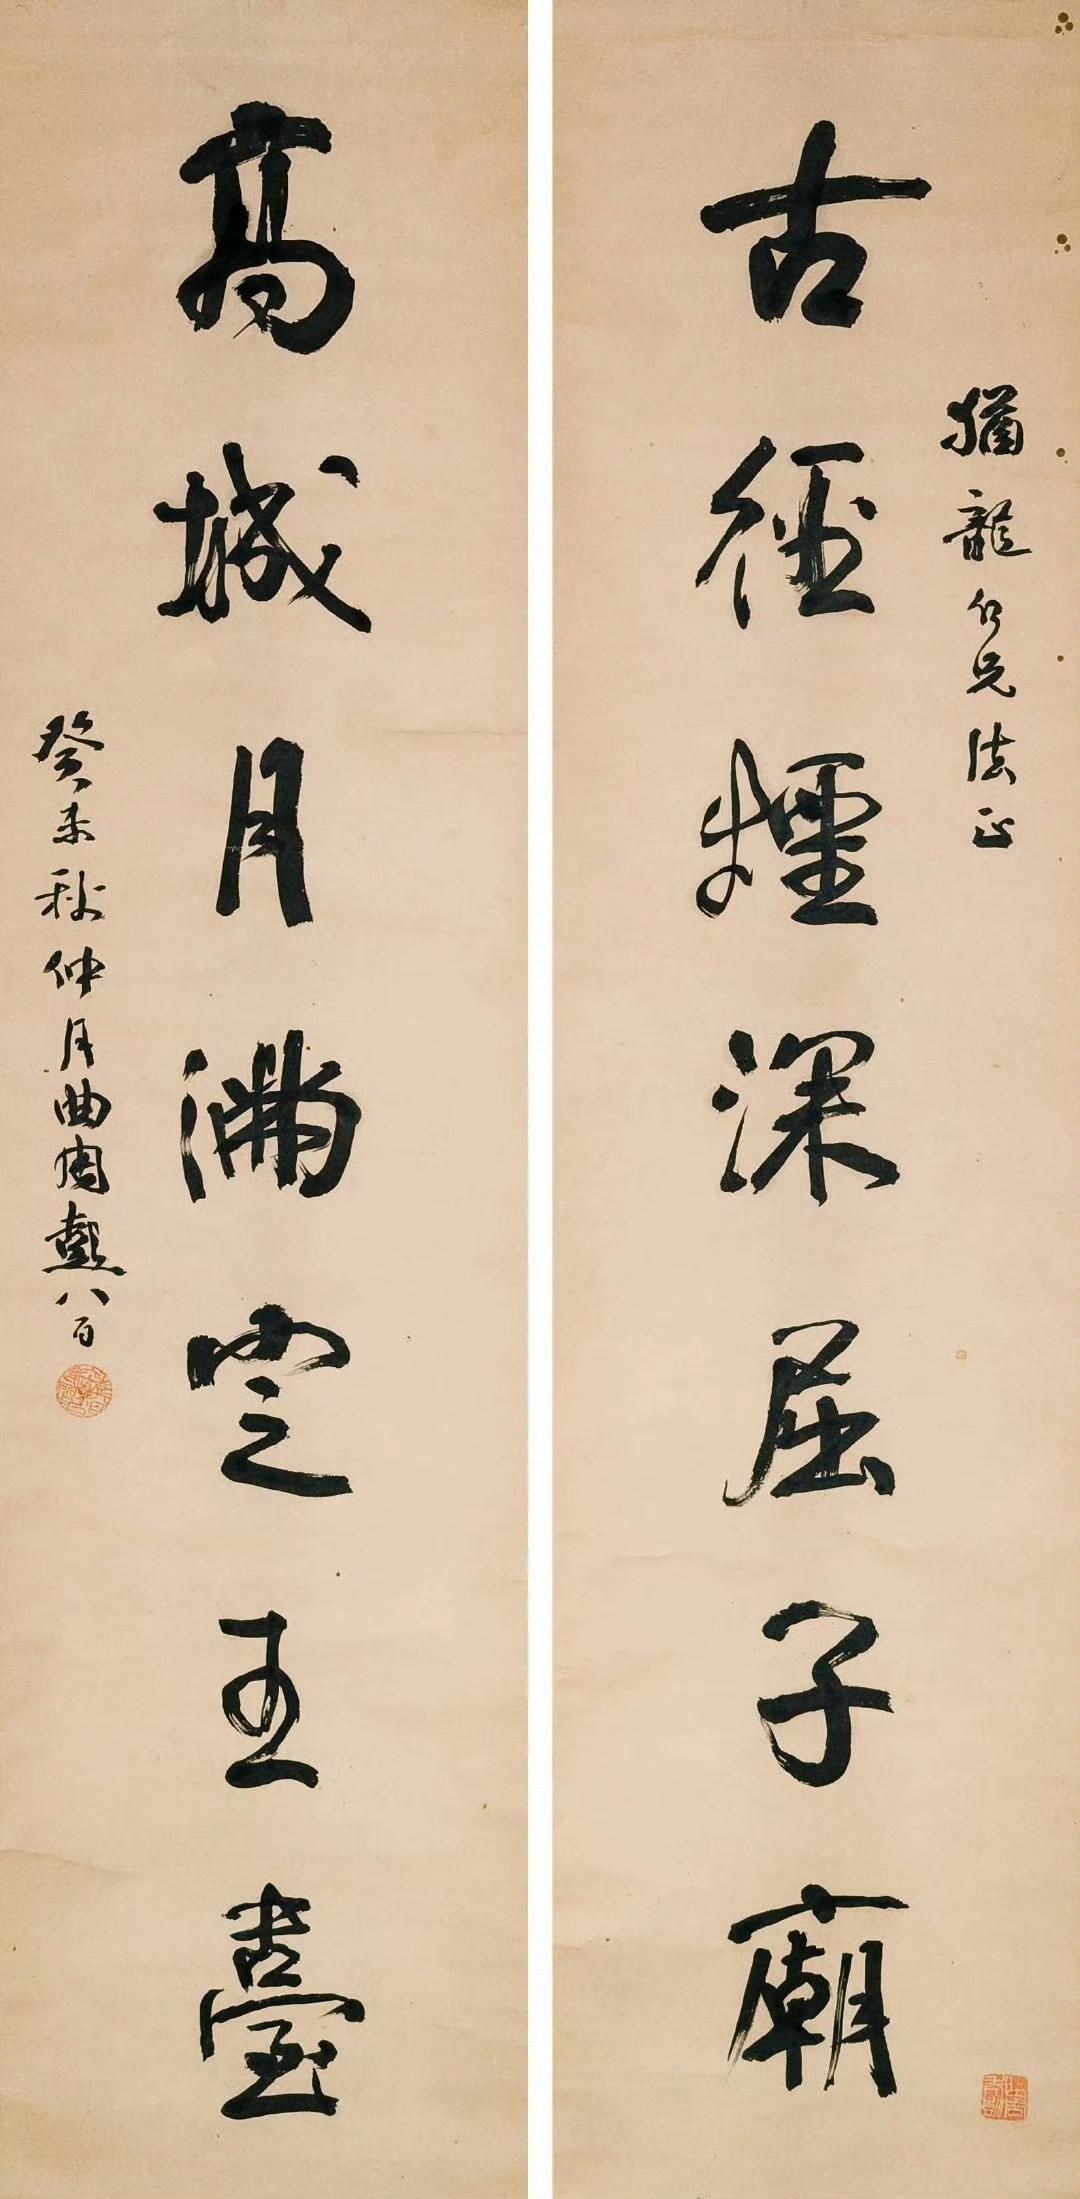 猶龍仁兄法正
古徑煙深屈子廟
高城月滿定王臺
癸未秋仲月曲園懿八百